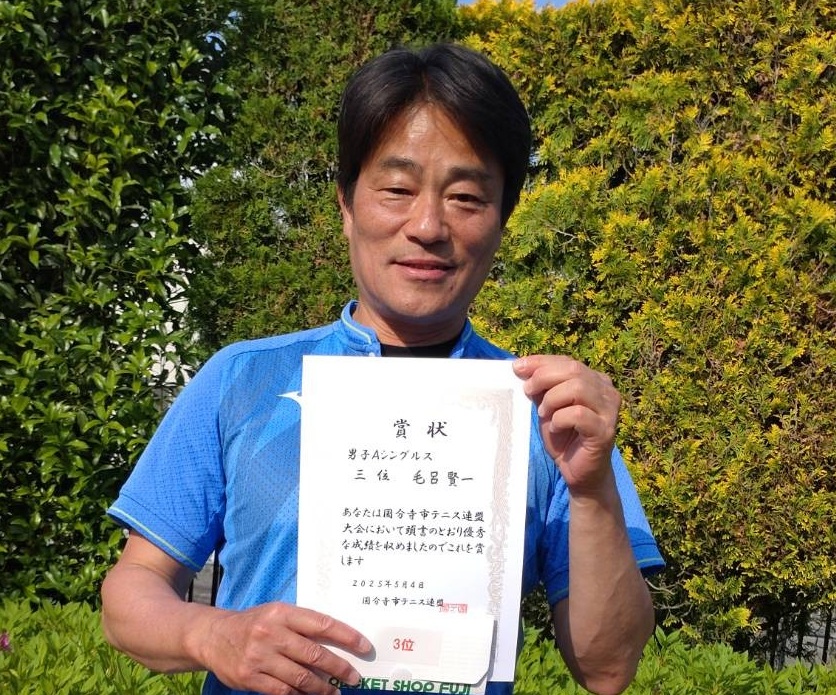 賞状
男子Aシングルス
三位 毛呂賢一
あなたは国分寺市テニス連盟
大会において頭書のとおり優秀
な成績を収めましたのでこれを賞
します
2025年5月4日
国分寺市テニス連盟
3位
RACKET SHOP FUJI